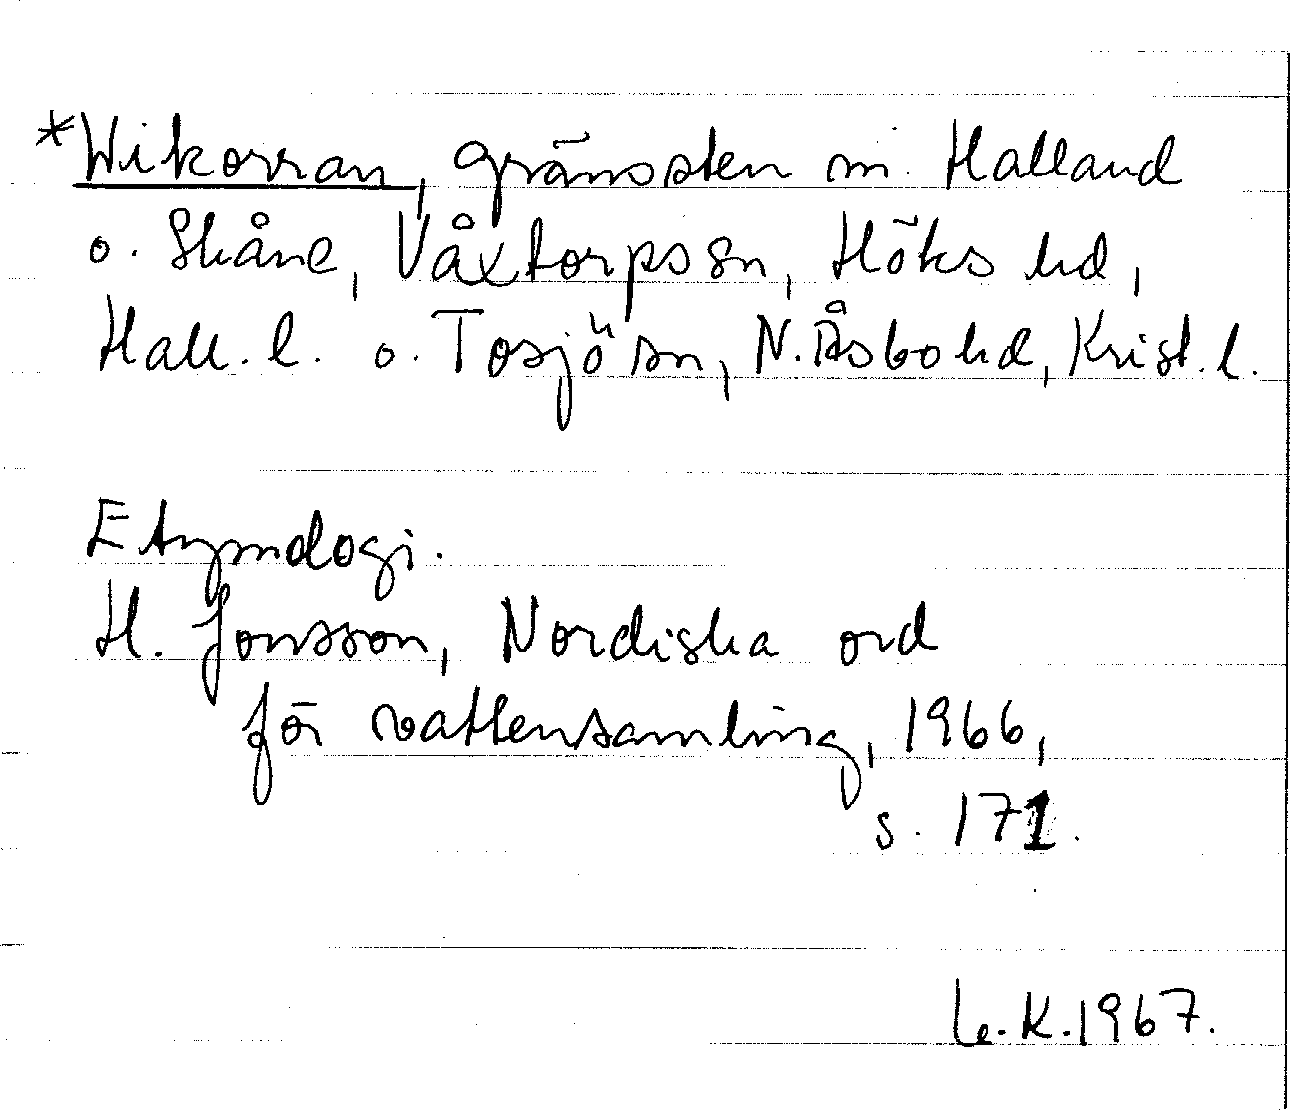 *Wikorran, gränssten m. Halland
o. Skåne, Våxtorps sn, Höks hd,
Hall. l. o. Tosjö sn, N. Åsbo hd, Krist. l.
Etymologi.
H. Jonsson, Nordiska ord
för vattensamling, 1966,
s. 171.
Le. K. 1967.